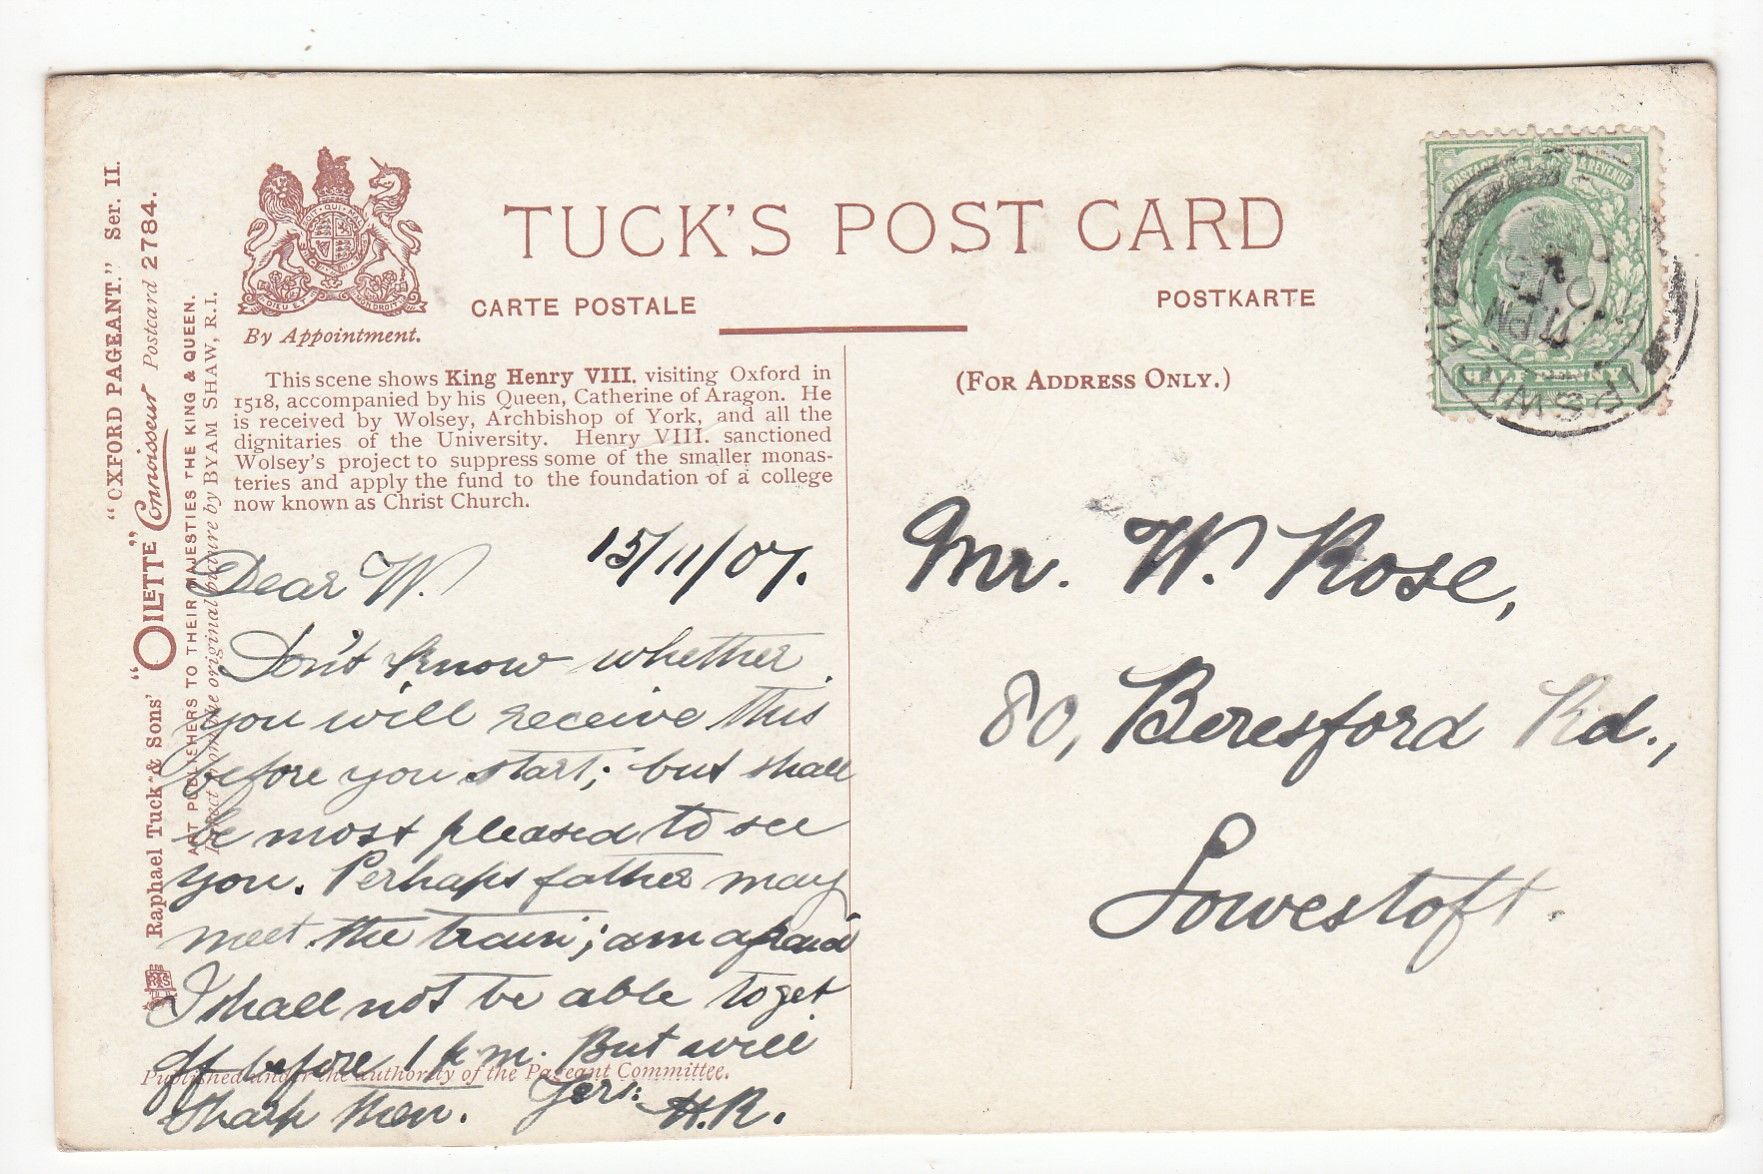 TUCK'S POST CARD
CARTE POSTALE
POSTKARTE
By Appointment.
(FOR ADDRESS ONLY.)
"OXFORD PAGEANT." Ser. II.
Raphael Tuck & Sons' "OILETTE" Connoisseur Postcard 2784.
ART PUBLISHERS TO THEIR MAJESTIES THE KING & QUEEN.
the original picture by BYAM SHAW, R.I.
This scene shows King Henry VIII. visiting Oxford in
1518, accompanied by his Queen, Catherine of Aragon. He
is received by Wolsey, Archbishop of York, and all the
dignitaries of the University. Henry VIII. sanctioned
Wolsey's project to suppress some of the smaller monas-
teries and apply the fund to the foundation of a college
now known as Christ Church.
15/11/07.
Dear W.
Don't know whether
you will receive this
before you start; but shall
be most pleased to see
you. Perhaps father may
meet the train; am afraid
I shall not be able to get
off before 1 p.m. But will
sharp then. Yrs: H.R.
Published under the authority of the Pageant Committee.
POSTAGE & REVENUE
HALFPENNY
IPSWICH
Mr. W. Rose,
80, Beresford Rd.,
Lowestoft.